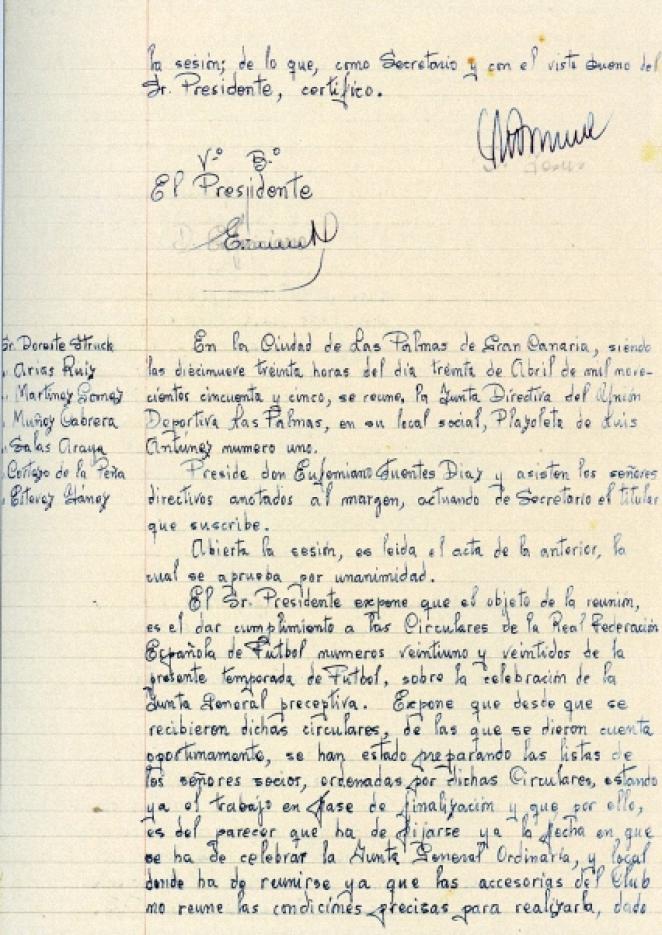 la sesión; de lo que, como Secretario y con el visto bueno del
Sr. Presidente, certifico.
Vº Bº
El Presidente
Sr. Doreste Struck
" Arias Ruiz
" Martinez Gomez
" Muñoz Cabrera
" Salas Araya
" Cortezo de la Peña
" Estevez Yanez
En la Ciudad de Las Palmas de Gran Canaria, siendo
las diecinueve treinta horas del dia treinta de Abril de mil nove-
cientos cincuenta y cinco, se reune la Junta Directiva del Unión
Deportiva Las Palmas, en su local social, Plazoleta de Luis
Antúnez numero uno.
Preside don Eufemiano Fuentes Diaz y asisten los señores
directivos anotados al margen, actuando de Secretario el titular
que suscribe.
Abierta la sesión, es leida el acta de la anterior, la
cual se aprueba por unanimidad.
El Sr. Presidente expone que el objeto de la reunión,
es el dar cumplimiento a las Circulares de la Real Federación
Española de Futbol numeros veintiuno y veintidos de la
presente temporada de Futbol, sobre la celebración de la
Junta General preceptiva. Expone que desde que se
recibieron dichas circulares, de las que se dieron cuenta
oportunamente, se han estado preparando las listas de
los señores socios, ordenadas por dichas Circulares, estando
ya el trabajo en fase de finalización y que por ello,
es del parecer que ha de fijarse ya la fecha en que
se ha de celebrar la Junta General Ordinaria, y local
donde ha de reunirse ya que las accesorias del Club
no reune las condiciones precisas para realizarla, dado